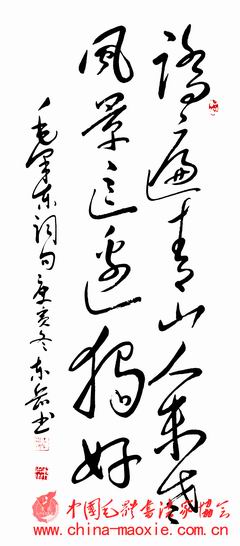 踏遍青山人未老
風景這邊獨好
毛澤東詞句庚寅冬东岳书
中國毛體書法家協會
www.china-maoxie.com.cn